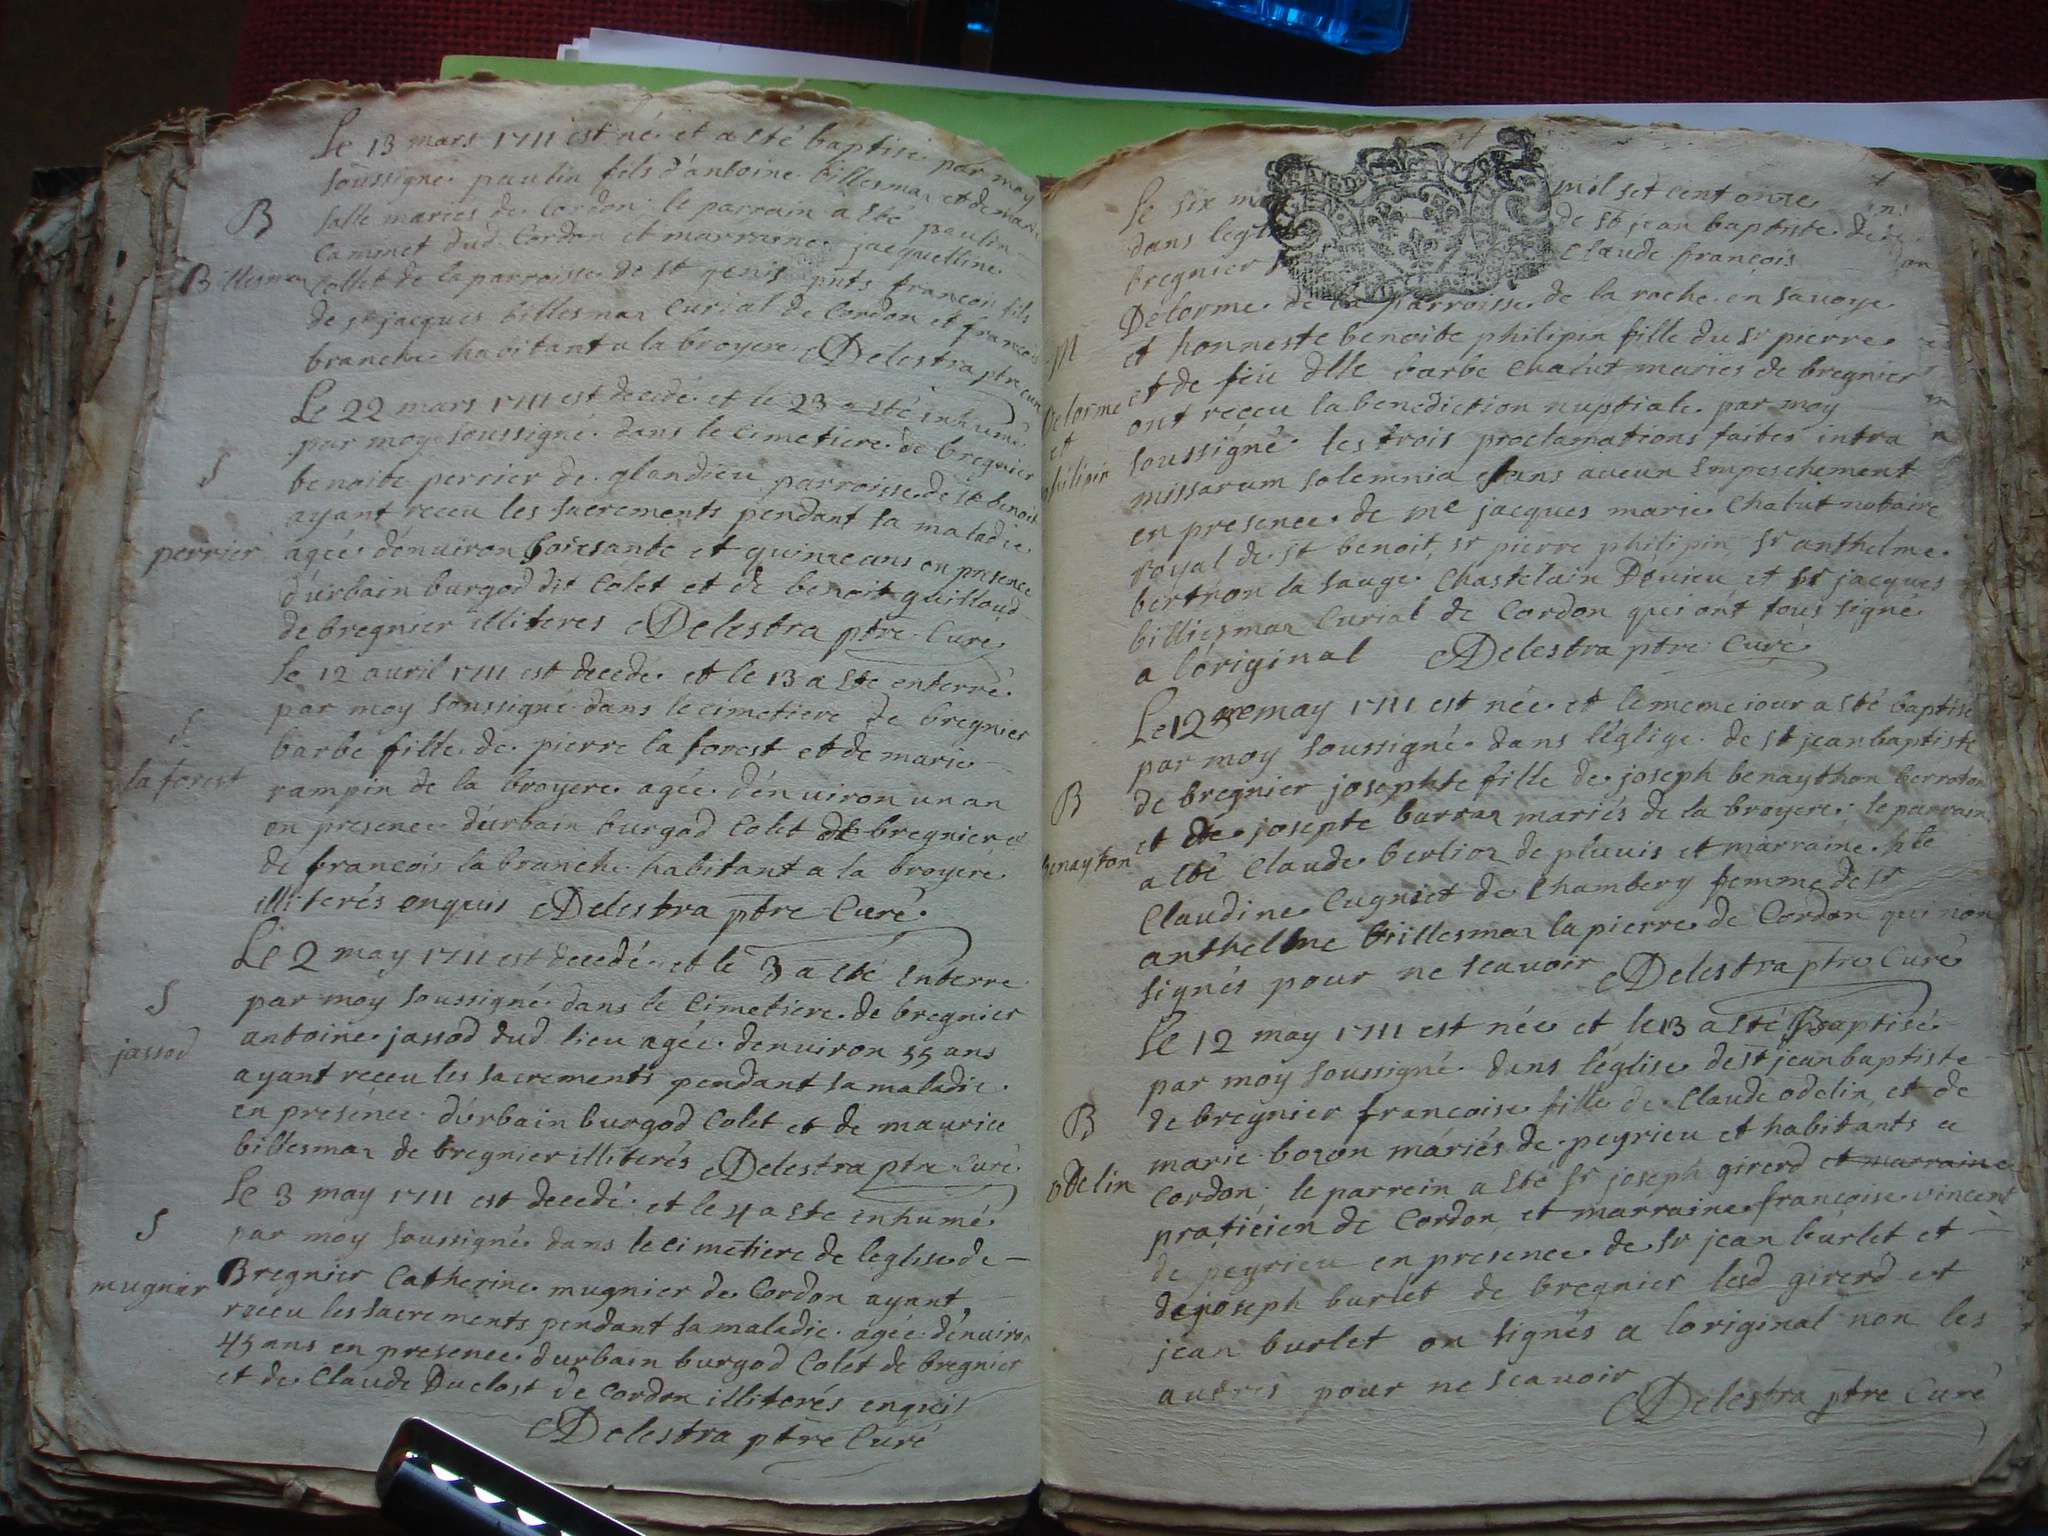 Le 13 mars 1711 est né et a sté baptise par moy
soussigné paulin fils d'antoine billesmaz et de marie
B
salle mariés de Cordon le parrain a sté paulin
Cammet dud Cordon et marraine jacquelline
Billesmaz
Collet de la parroisse de st genis pnts françois fils
de sr jacques billesmaz Curial de Cordon et françois
branche habitant a la broyere Delestra ptre curé
Le 22 mars 1711 est decedé et le 23 a sté inhumé
par moy soussigné dans le cimetiere de bregnier
S
benoite perrier de glandieu parroisse de st benoit
ayant receu les sacrements pendant sa maladie
perrier
agée d'enuiron soixsante et quinze ans en presence
d'urbain burgod dit Colet et de benoit guilloud
de bregnier illiteres Delestra ptre Curé
le 12 auril 1711 est decede et le 13 a sté enterré
par moy soussigné dans le cimetiere de bregnier
S
barbe fille de pierre la forest et de marie
la forest
rampin de la broyere agée d'enuiron un an
en presence d'urbain burgod Colet de bregnier et
de francois la branche habitant a la broyere
illiterés enquis Delestra ptre Curé
Le 2 may 1711 est decedé et le 3 a sté enterré
S
par moy soussigné dans le cimetiere de bregnier
jassod
antoine jassod dud lieu agée denuiron 55 ans
ayant receu les sacrements pendant sa maladie
en presence d'urbain burgod Colet et de maurice
billesmaz de bregnier illiterés Delestra ptre Curé
Le 3 may 1711 est decedé et le 4 a ste inhumé
S
par moy soussigné dans le cimetiere de leglise de
mugnier
Bregnier Catherine mugnier de Cordon ayant
receu les sacrements pendant sa maladie agée d'enuiron
45 ans en presence d'urbain burgod Colet de bregnier
et de Claude Duclost de Cordon illiterés enquis
Delestra ptre Curé
Le six may mil set cent onze
dans leglise de st jean baptiste de
bregnier Claude françois
Delorme de la parroisse de la roche en sauoye
M
et honneste benoite philipin fille du sr pierre
et de feu dlle barbe Chalut mariés de bregnier
Delorme
ont receu la benediction nuptiale par moy
et
soussigné les trois proclamations faites intra
philipin
missarum solemnia sans aucun Empeschement
en presence de me jacques marie Chalut notaire
royal de st benoit, sr pierre philipin, sr anthelme
bertron la sauge Chastelain Douieu et sr jacques
billiesmaz Curial de Cordon qui ont tous signé
a l'original Delestra ptre Curé
Le 12 me may 1711 est née et le meme iour a sté baptisé
par moy soussigné dans l'eglige de st jean baptiste
B
de bregnier josephte fille de joseph benaython berroton
et de josepte burraz mariés de la broyere le parrain
benayton
a sté Claude berlioz de pluuis et marraine hte
Claudine Cugniet de Chambery femme de sr
anthelme billesmaz la pierre de Cordon qui non
signés pour ne scauoir Delestra ptre Curé
Le 12 may 1711 est née et le 13 a sté Baptisé
par moy soussigné dans l'eglise de st jean baptiste
B
de bregnier francoise fille de Claude odelin et de
marie bozon mariés de peyrieu et habitants a
odelin
Cordon le parrein a sté sr joseph girerd et marraine
praticien de Cordon et marraine francoise vincent
de peyrieu en presence de sr jean burlet et
de joseph burlet de bregnier lesd girerd et
jean burlet on signés a l'original non les
autres pour ne scauoir
Delestra ptre Curé